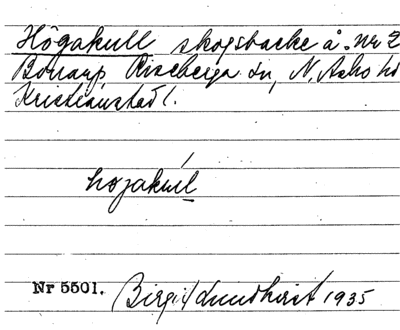 Högakull skogsbacke å. nr 2
Bonarp Riseberga sn, N. Åsbo hd
Kristianstad l.
hojakul
Nr 5501. Birgit Lundkvist 1935